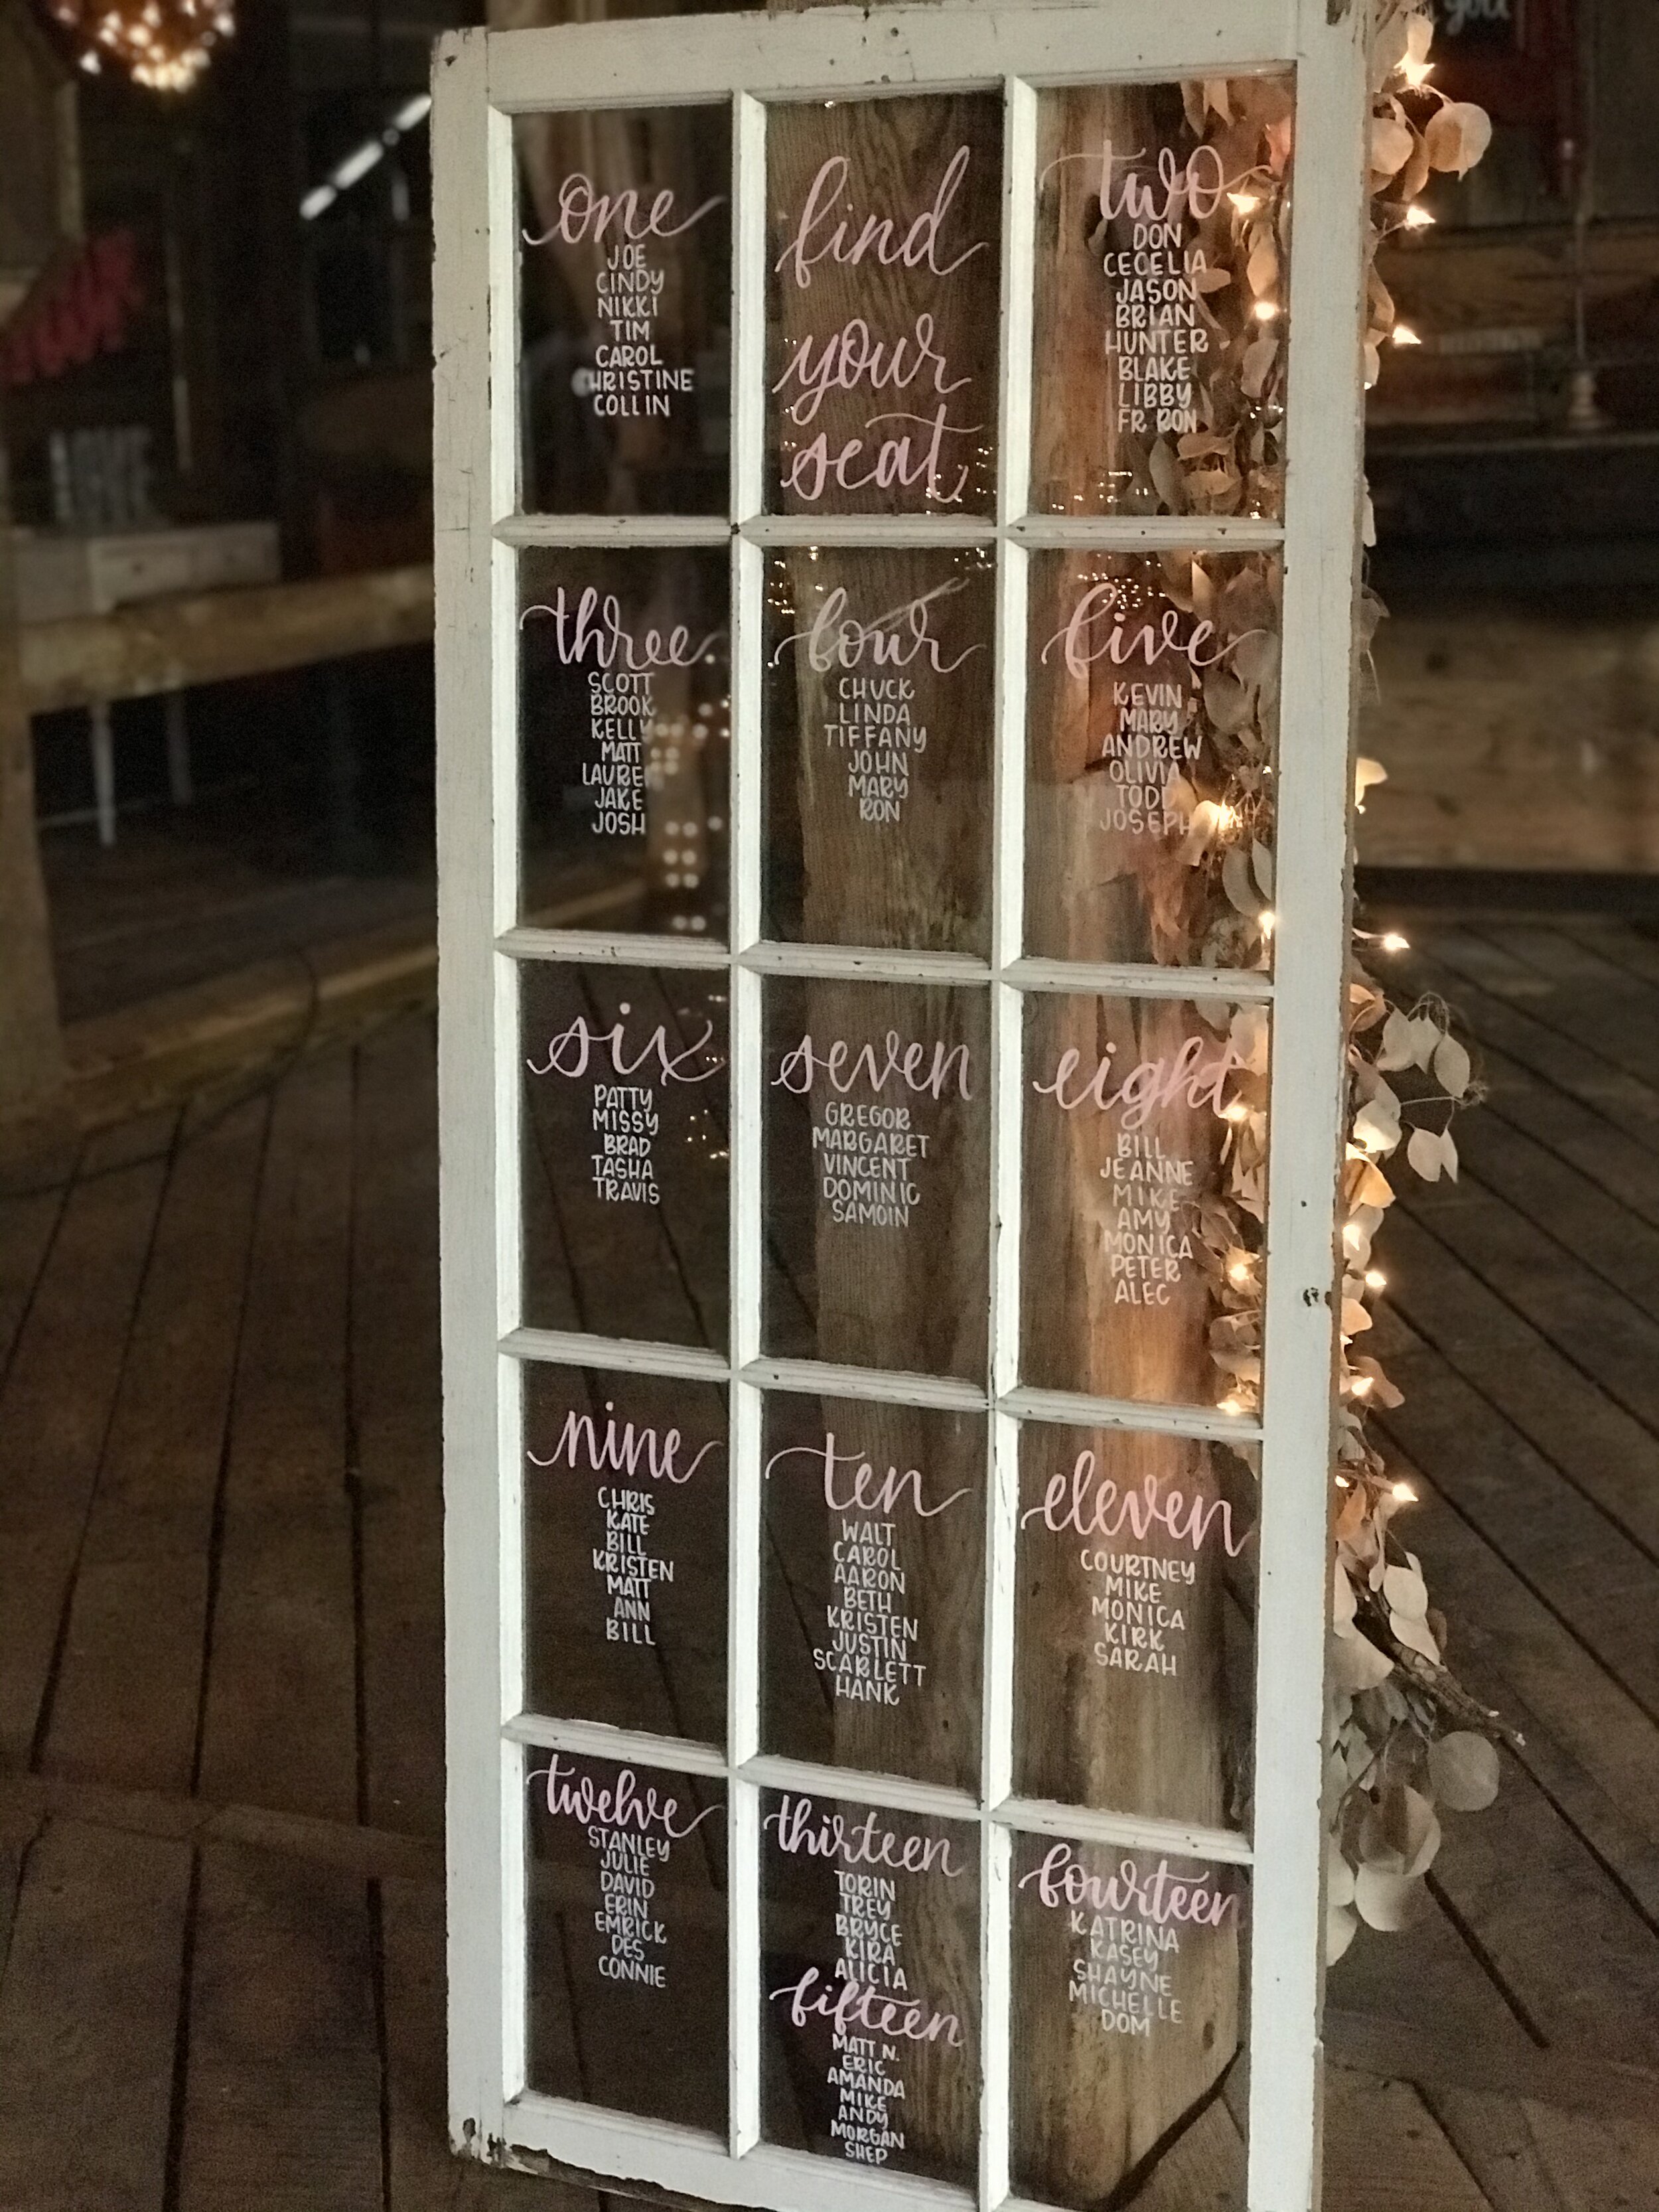 you
one
JOE
CINDY
NIKKI
TIM
CAROL
CHRISTINE
COLLIN
find
your
seat
two
DON
CECELIA
JASON
BRIAN
HUNTER
BLAKE
LIBBY
FR RON
three
SCOTT
BROOK
KELLY
MATT
LAUREN
JAKE
JOSH
four
CHUCK
LINDA
TIFFANY
JOHN
MARY
RON
five
KEVIN
MARY
ANDREW
OLIVIA
TODD
JOSEPH
six
PATTY
MISSY
BRAD
TASHA
TRAVIS
seven
GREGOR
MARGARET
VINCENT
DOMINIC
SAMOIN
eight
BILL
JEANNE
MIKE
AMY
MONICA
PETER
ALEC
nine
CHRIS
KATE
BILL
KRISTEN
MATT
ANN
BILL
ten
WALT
CAROL
AARON
BETH
KRISTEN
JUSTIN
SCARLETT
HANK
eleven
COURTNEY
MIKE
MONICA
KIRK
SARAH
twelve
STANLEY
JULIE
DAVID
ERIN
EMRICK
DES
CONNIE
thirteen
TORIN
TREY
BRYCE
KIRA
ALICIA
fifteen
MATT N.
ERIC
AMANDA
MIKE
ANDY
MORGAN
SHEP
fourteen
KATRINA
KASEY
SHAYNE
MICHELLE
DOM